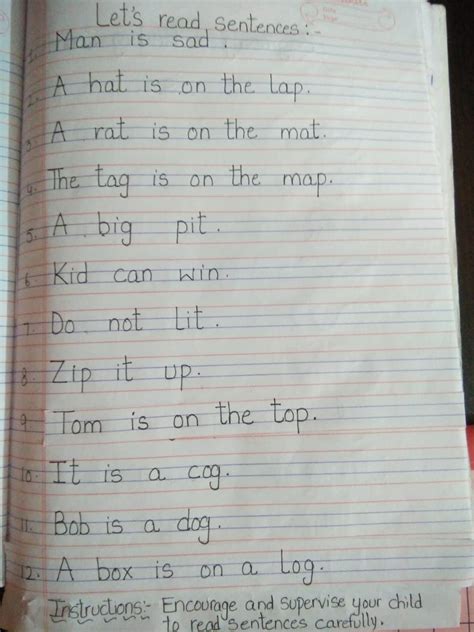 Let's read sentences:-
1. Man is sad.
2. A hat is on the lap.
3. A rat is on the mat.
4. The tag is on the map.
5. A big pit.
6. Kid can win.
7. Do not lit.
8. Zip it up.
9. Tom is on the top.
10. It is a cog.
11. Bob is a dog.
12. A box is on a log.
Instructions:- Encourage and supervise your child
to read sentences carefully.